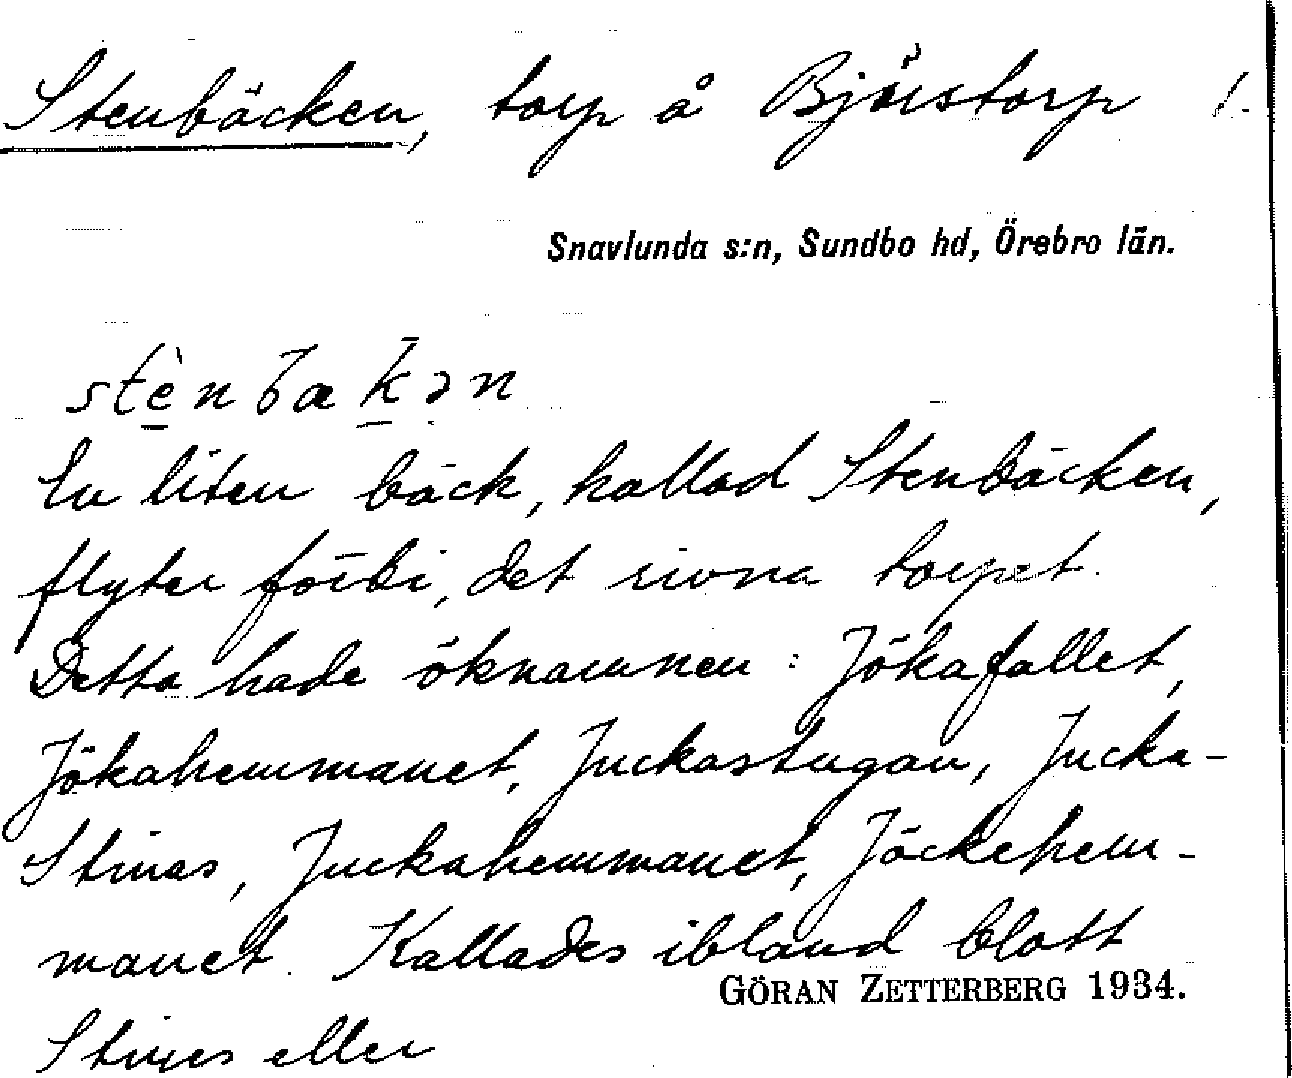 Stenbäcken, torp å Björstorp 1.
Snavlunda s:n, Sundbo hd, Örebro län.
stènbækən
En liten bäck, kallad Stenbäcken,
flyter förbi, det rivna torpet.
Detta hade öknamnen: Jökafallet,
Jökahemmanet, Juckastugan, Jucka-
Stinas, Juckahemmanet, Jöckehem-
manet. Kallades ibland blott
GÖRAN ZETTERBERG 1934.
Stines eller